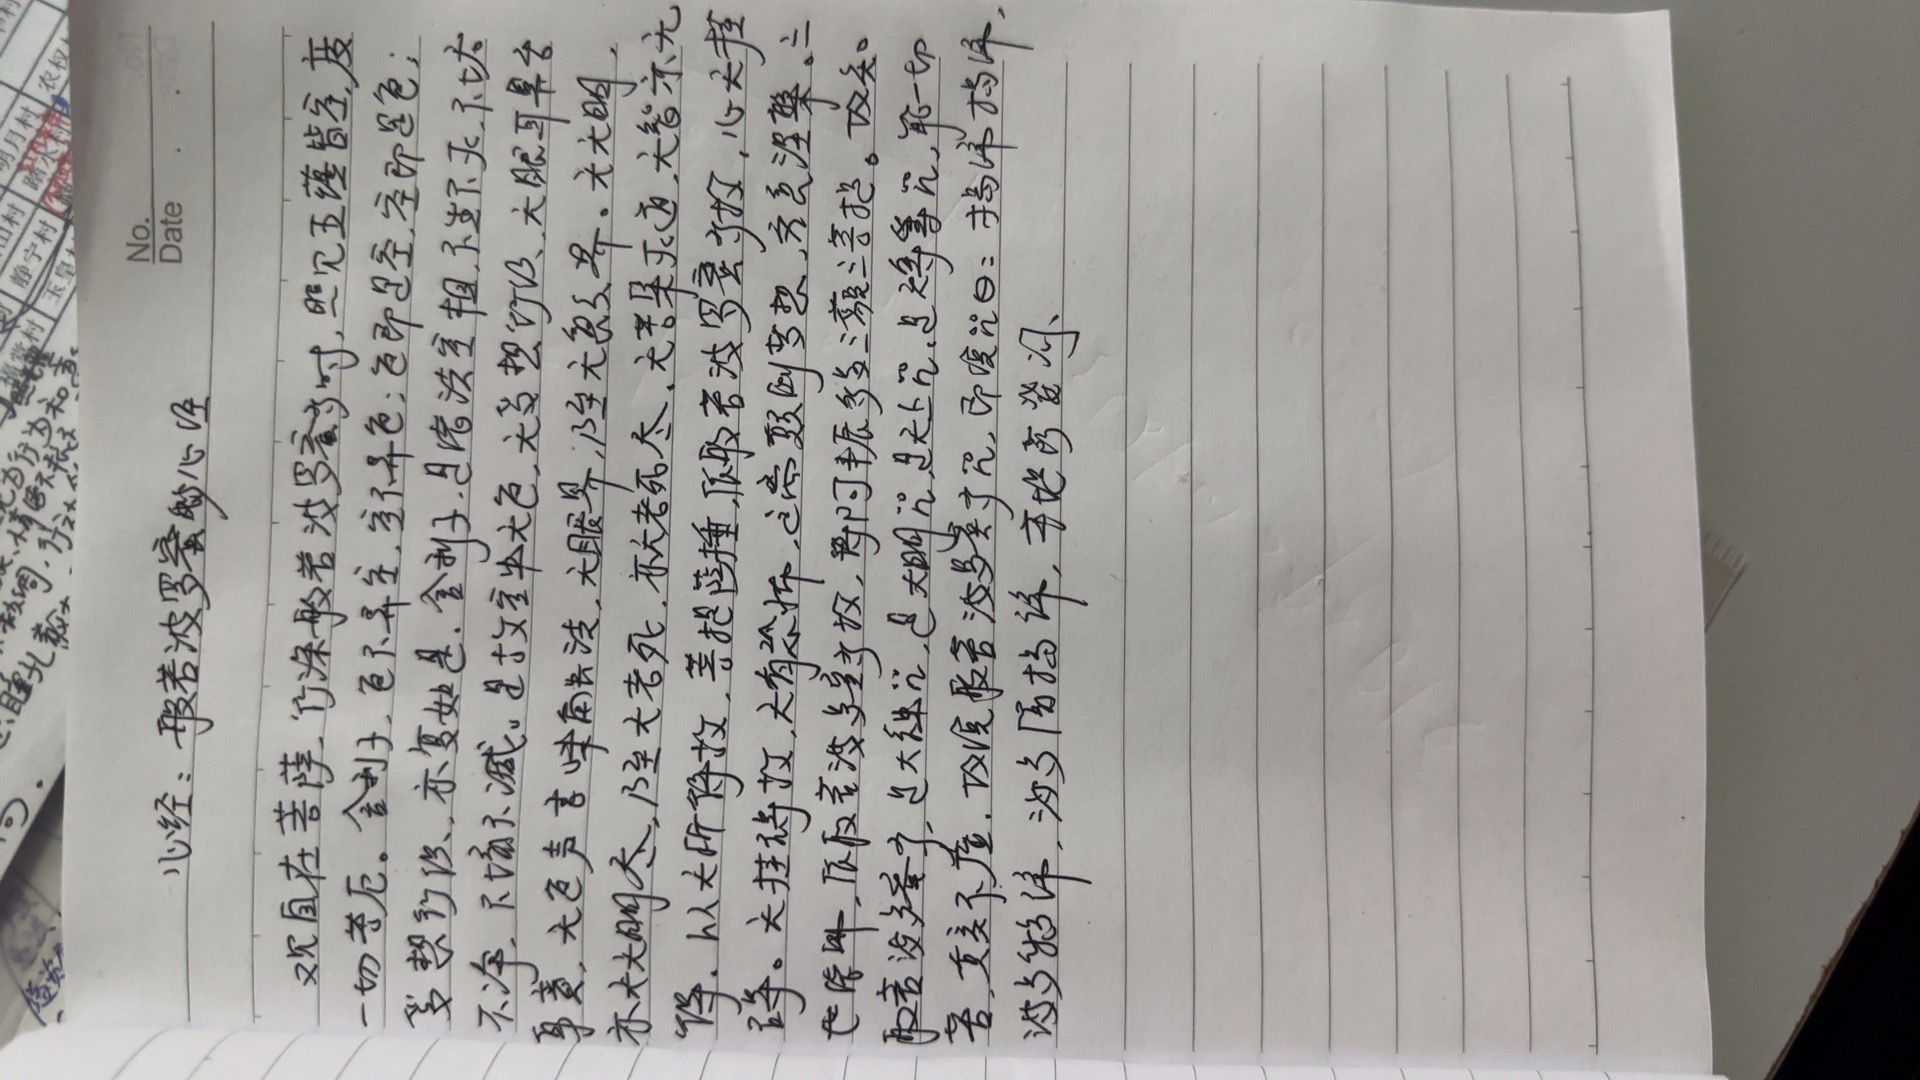 No.
Date
心经：般若波罗蜜多心经
观自在菩萨，行深般若波罗蜜多时，照见五蕴皆空，度
一切苦厄。舍利子，色不异空，空不异色；色即是空，空即是色；
受想行识，亦复如是。舍利子，是诸法空相，不生不灭，不垢
不净，不增不减。是故空中无色，无受想行识、无眼耳鼻舌
身意，无色声香味触法，无眼界，乃至无意识界。无无明，
亦无无明尽，乃至无老死，亦无老死尽。无苦集灭道，无智亦无
得。以无所得故，菩提萨埵，依般若波罗蜜多故，心无挂
碍。无挂碍故，无有恐怖，远离颠倒梦想，究竟涅槃。三
世诸佛，依般若波罗蜜多故，得阿耨多罗三藐三菩提。故知
般若波罗蜜多，是大神咒，是大明咒，是无上咒，是无等等咒，能一切
苦，真实不虚。故说般若波罗蜜多咒，即说咒曰：揭谛揭谛，
波罗揭谛，波罗僧揭谛，菩提萨婆诃、
明月村
静宁村